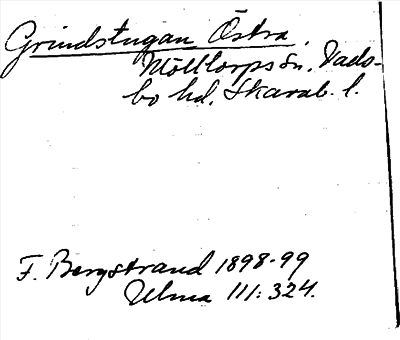 Grindstugan Östra.
Mölltorps sn. Vads-
bo hd. Skarab. l.
F. Bergstrand 1898-99
Ulma 111:324.